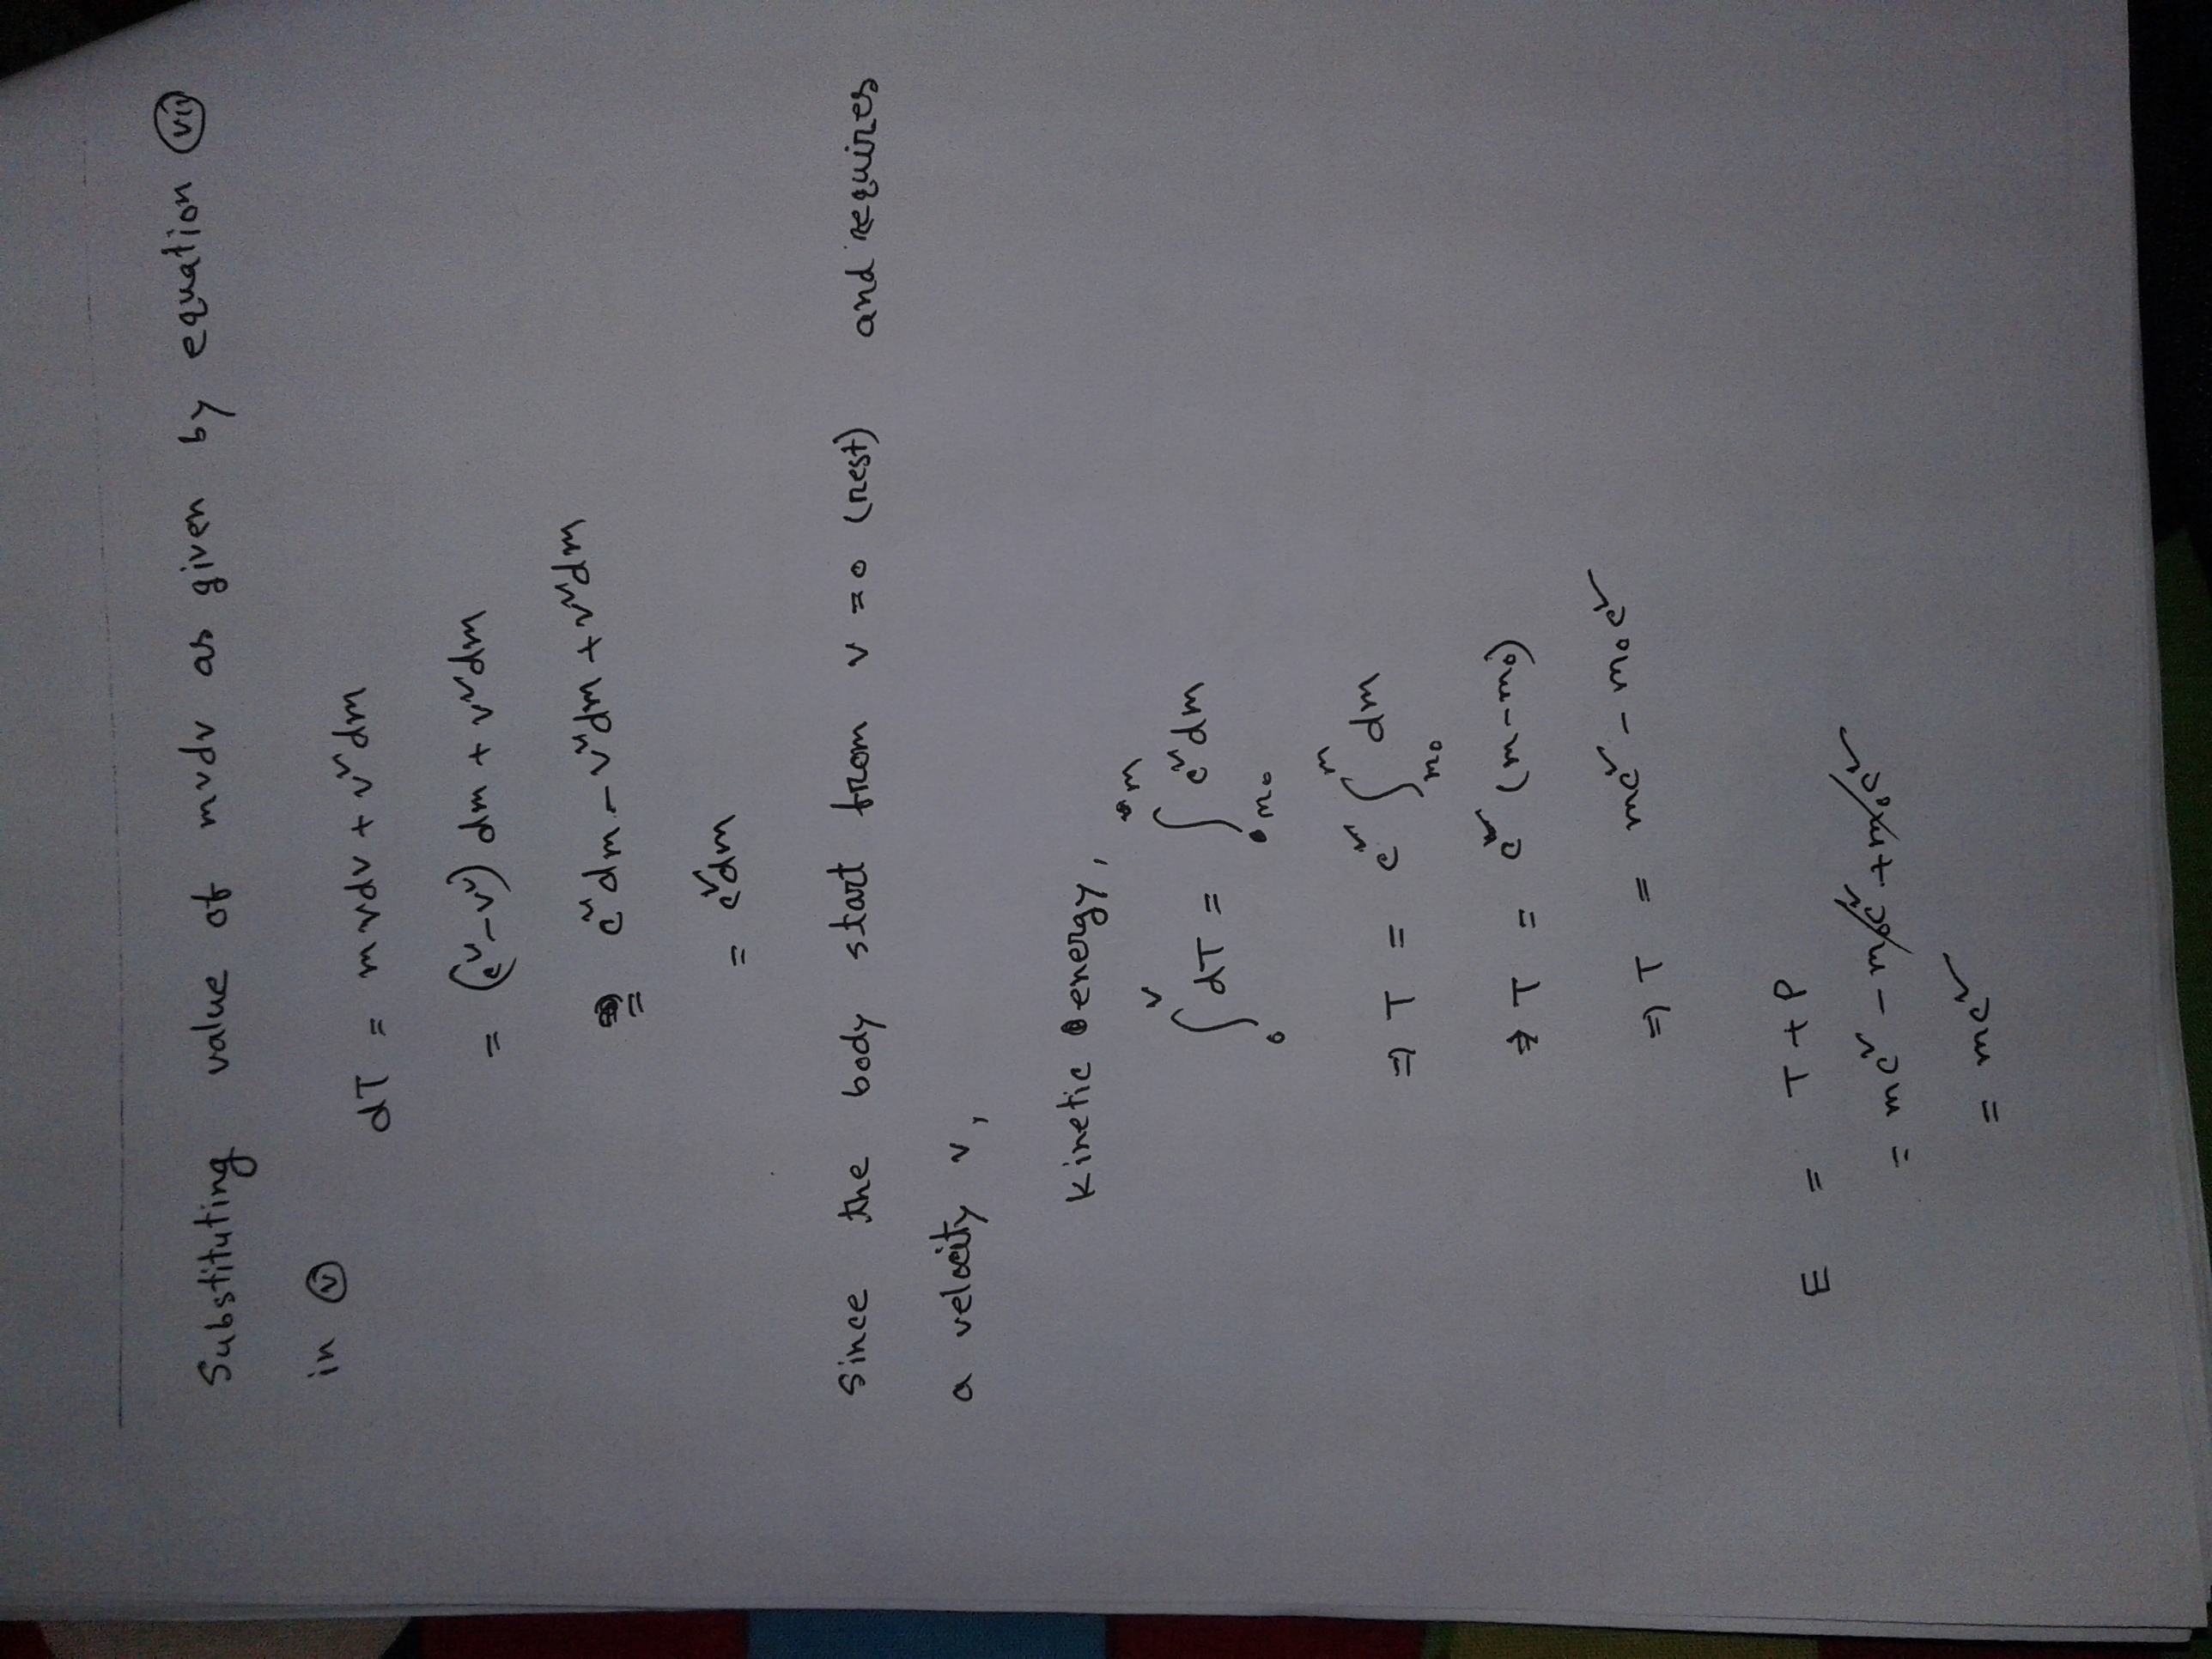 Substituting value of mvdv as given by equation (vii)
in (v)
dT = mvdv + v² dm
= (c² - v²) dm + v² dm
= c² dm - v² dm + v² dm
= c² dm
Since the body start from v = 0 (rest) and requires
a velocity v,
Kinetic energy,
∫₀^v dT = ∫_{m₀}^m c² dm
⇒ T = c² ∫_{m₀}^m dm
⇒ T = c² (m - m₀)
⇒ T = mc² - m₀c²
E = T + P
= mc² - m₀c² + m₀c²
= mc²